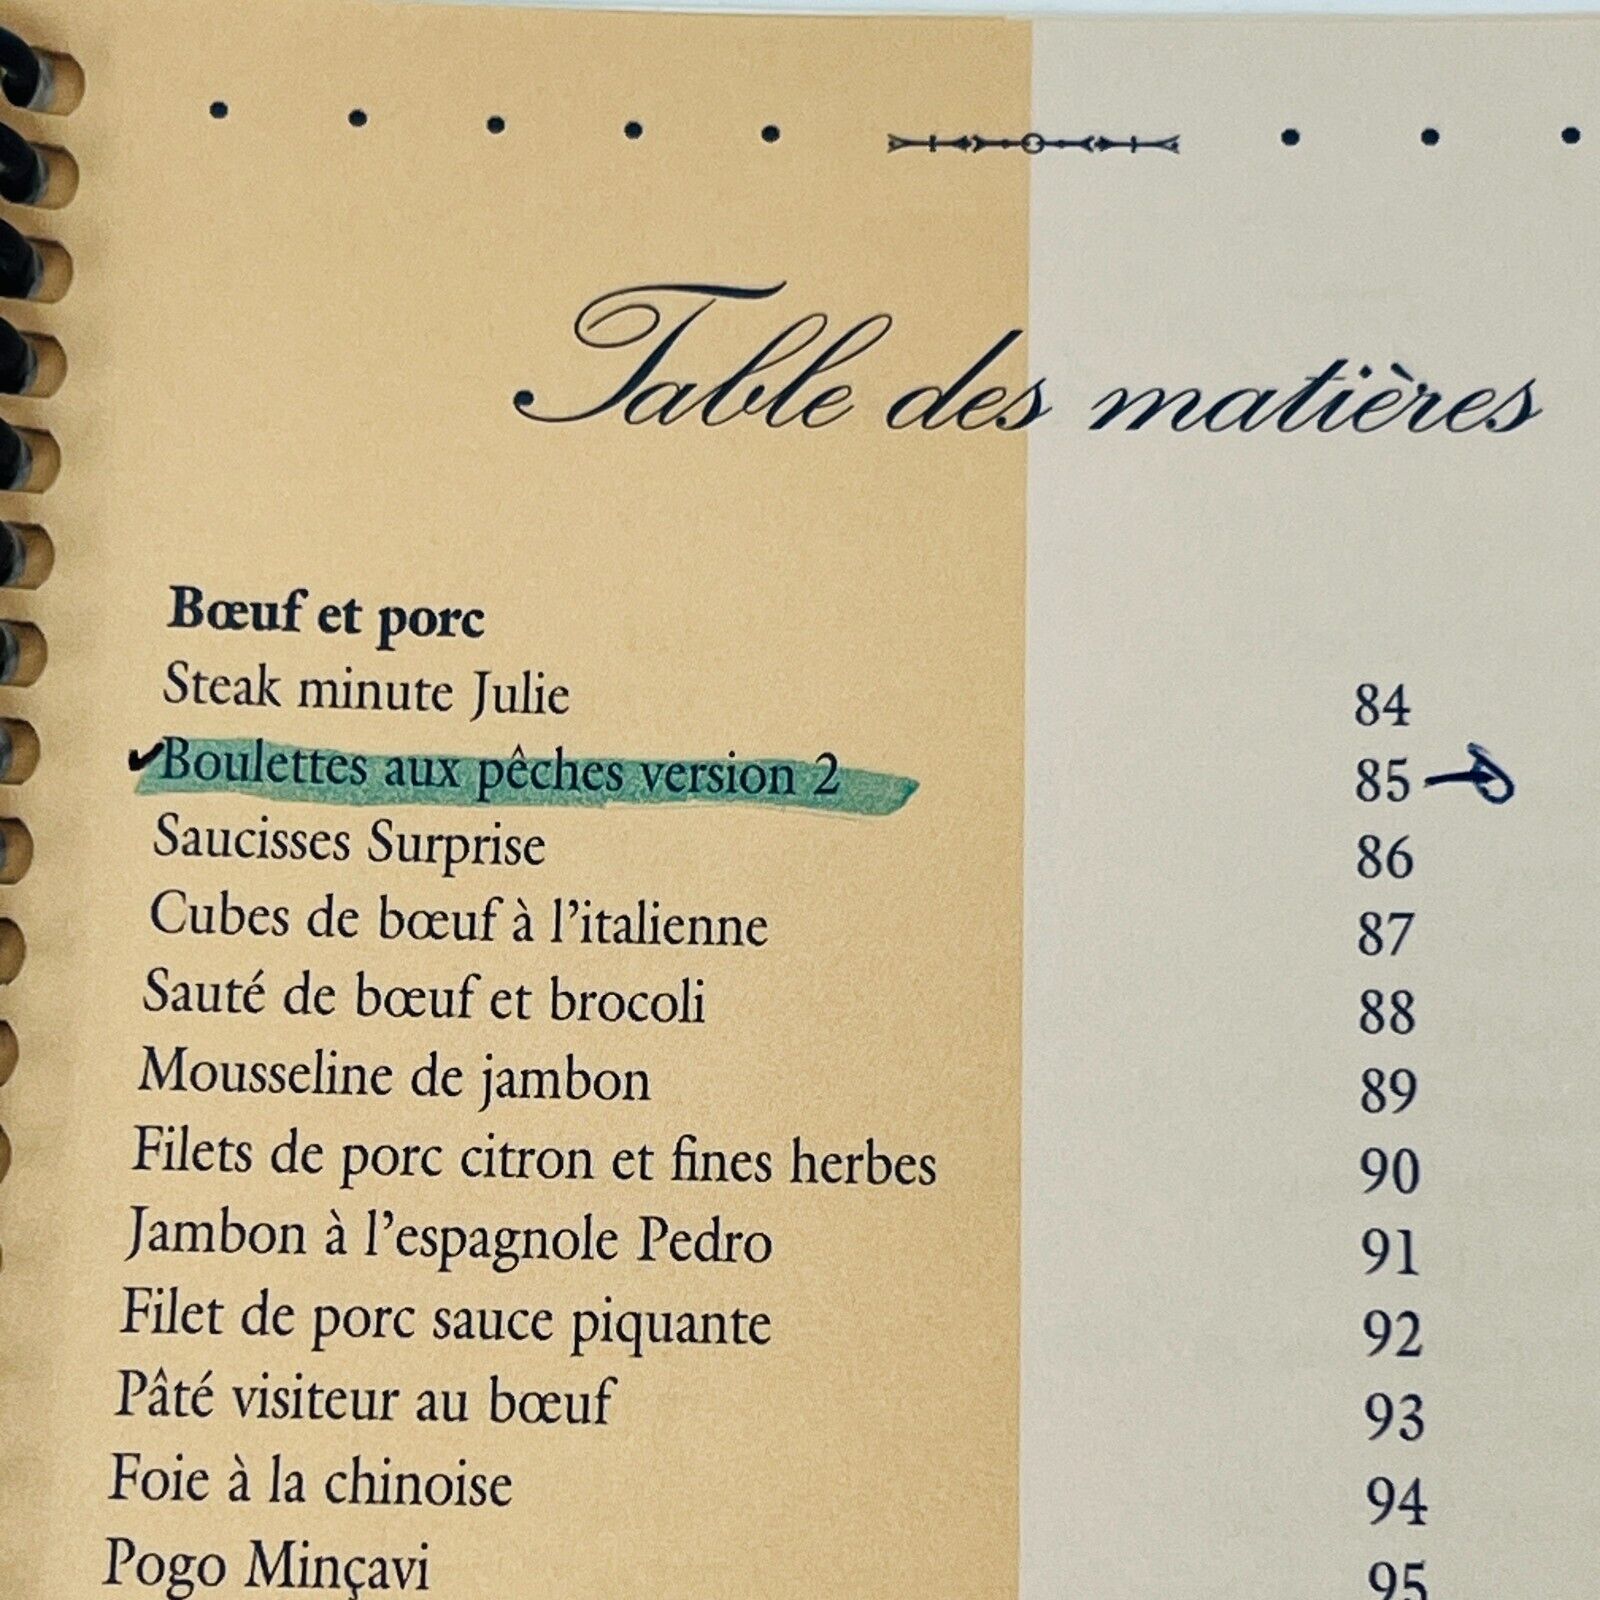 Table des matières
Bœuf et porc
Steak minute Julie 84
✓Boulettes aux pêches version 2 85
Saucisses Surprise 86
Cubes de bœuf à l'italienne 87
Sauté de bœuf et brocoli 88
Mousseline de jambon 89
Filets de porc citron et fines herbes 90
Jambon à l'espagnole Pedro 91
Filet de porc sauce piquante 92
Pâté visiteur au bœuf 93
Foie à la chinoise 94
Pogo Minçavi 95